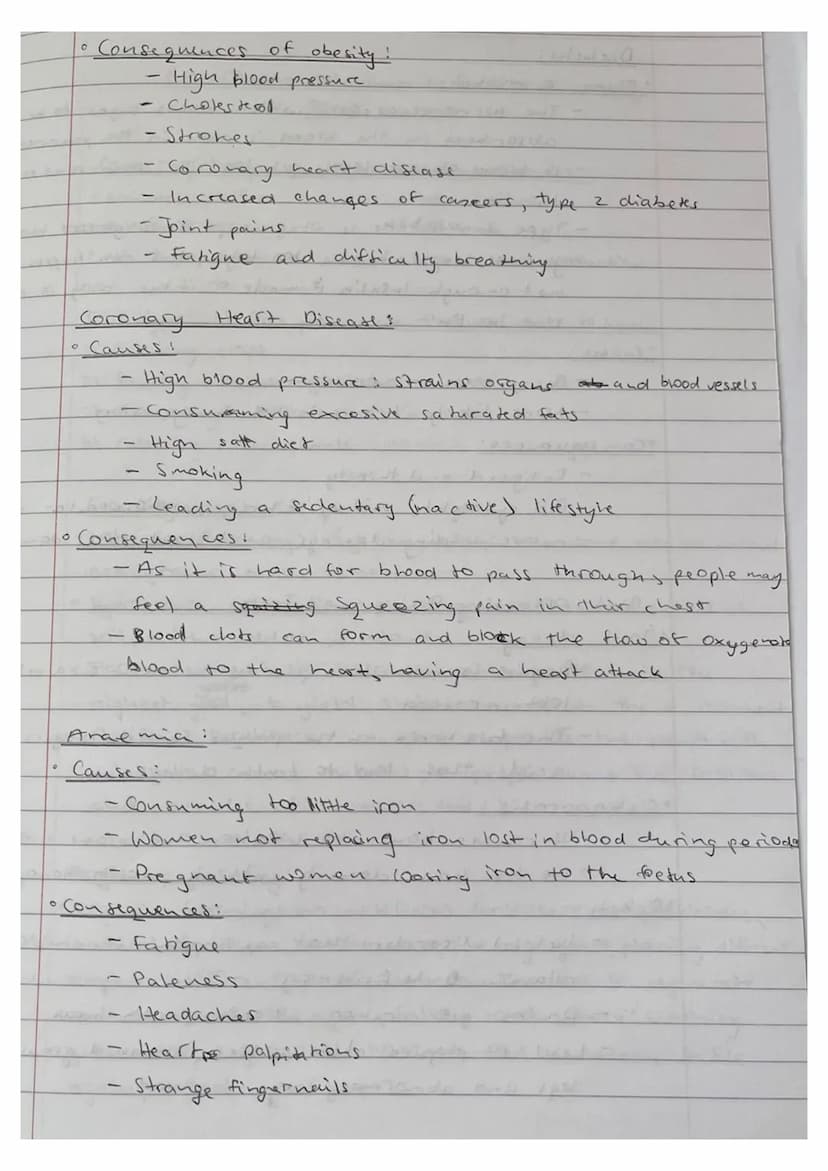 ◦ Consequences of obesity:
- High blood pressure
- Cholesterol
- Strokes
- Coronary heart disease
- Increased changes of cancers, type 2 diabetes
- Joint pains
- Fatigue and difficulty breathing
Coronary Heart Disease:
◦ Causes:
- High blood pressure: strains organs and blood vessels
- Consuming excesive saturated fats
- High salt diet
- Smoking
- Leading a sedentary (inactive) lifestyle
◦ Consequences:
- As it is hard for blood to pass through, people may
feel a squeezing pain in their chest
- Blood clots can form and block the flow of oxygenate
blood to the heart, having a heart attack
Anaemia:
◦ Causes:
- Consuming too little iron
- Women not replacing iron lost in blood during periods
- Pregnant women loosing iron to the foetus
◦ Consequences:
- Fatigue
- Paleness
- Headaches
- Heart palpitations
- Strange fingernails